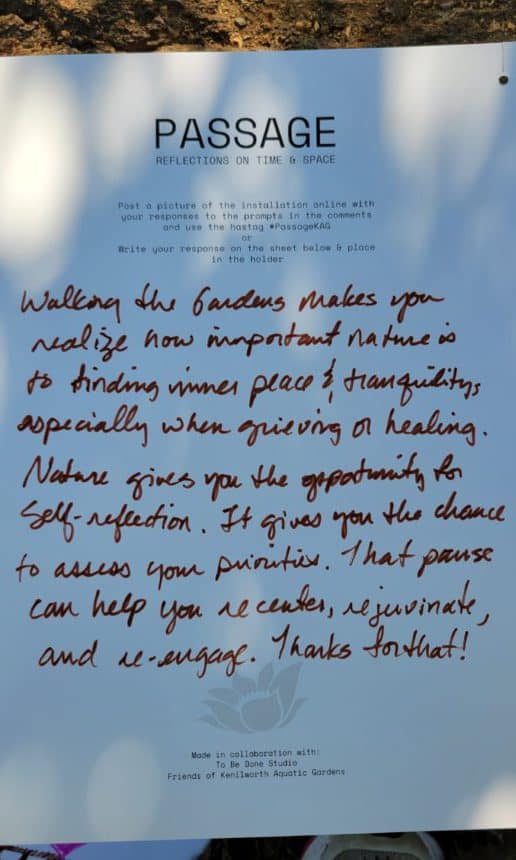 PASSAGE
REFLECTIONS ON TIME & SPACE
Post a picture of the installation online with
your responses to the prompts in the comments
and use the hastag #PassageKAG
or
Write your response on the sheet below & place
in the holder
Walking the Gardens makes you
realize how important nature is
to finding inner peace & tranquility,
especially when grieving or healing.
Nature gives you the oppotunity for
Self-reflection. It gives you the chance
to assess your priorities. That pause
can help you recenter, rejuvinate,
and re-engage. Thanks for that!
Made in collaboration with:
To Be Done Studio
Friends of Kenilworth Aquatic Gardens